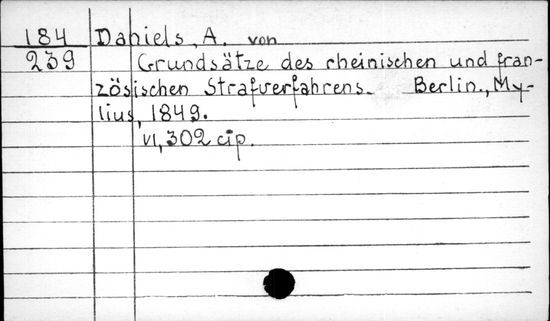 184 Daniels, A. von
239 Grundsätze des rheinischen und fran-
zösischen Strafverfahrens. Berlin., My-
lius, 1849.
VI, 302 cip.